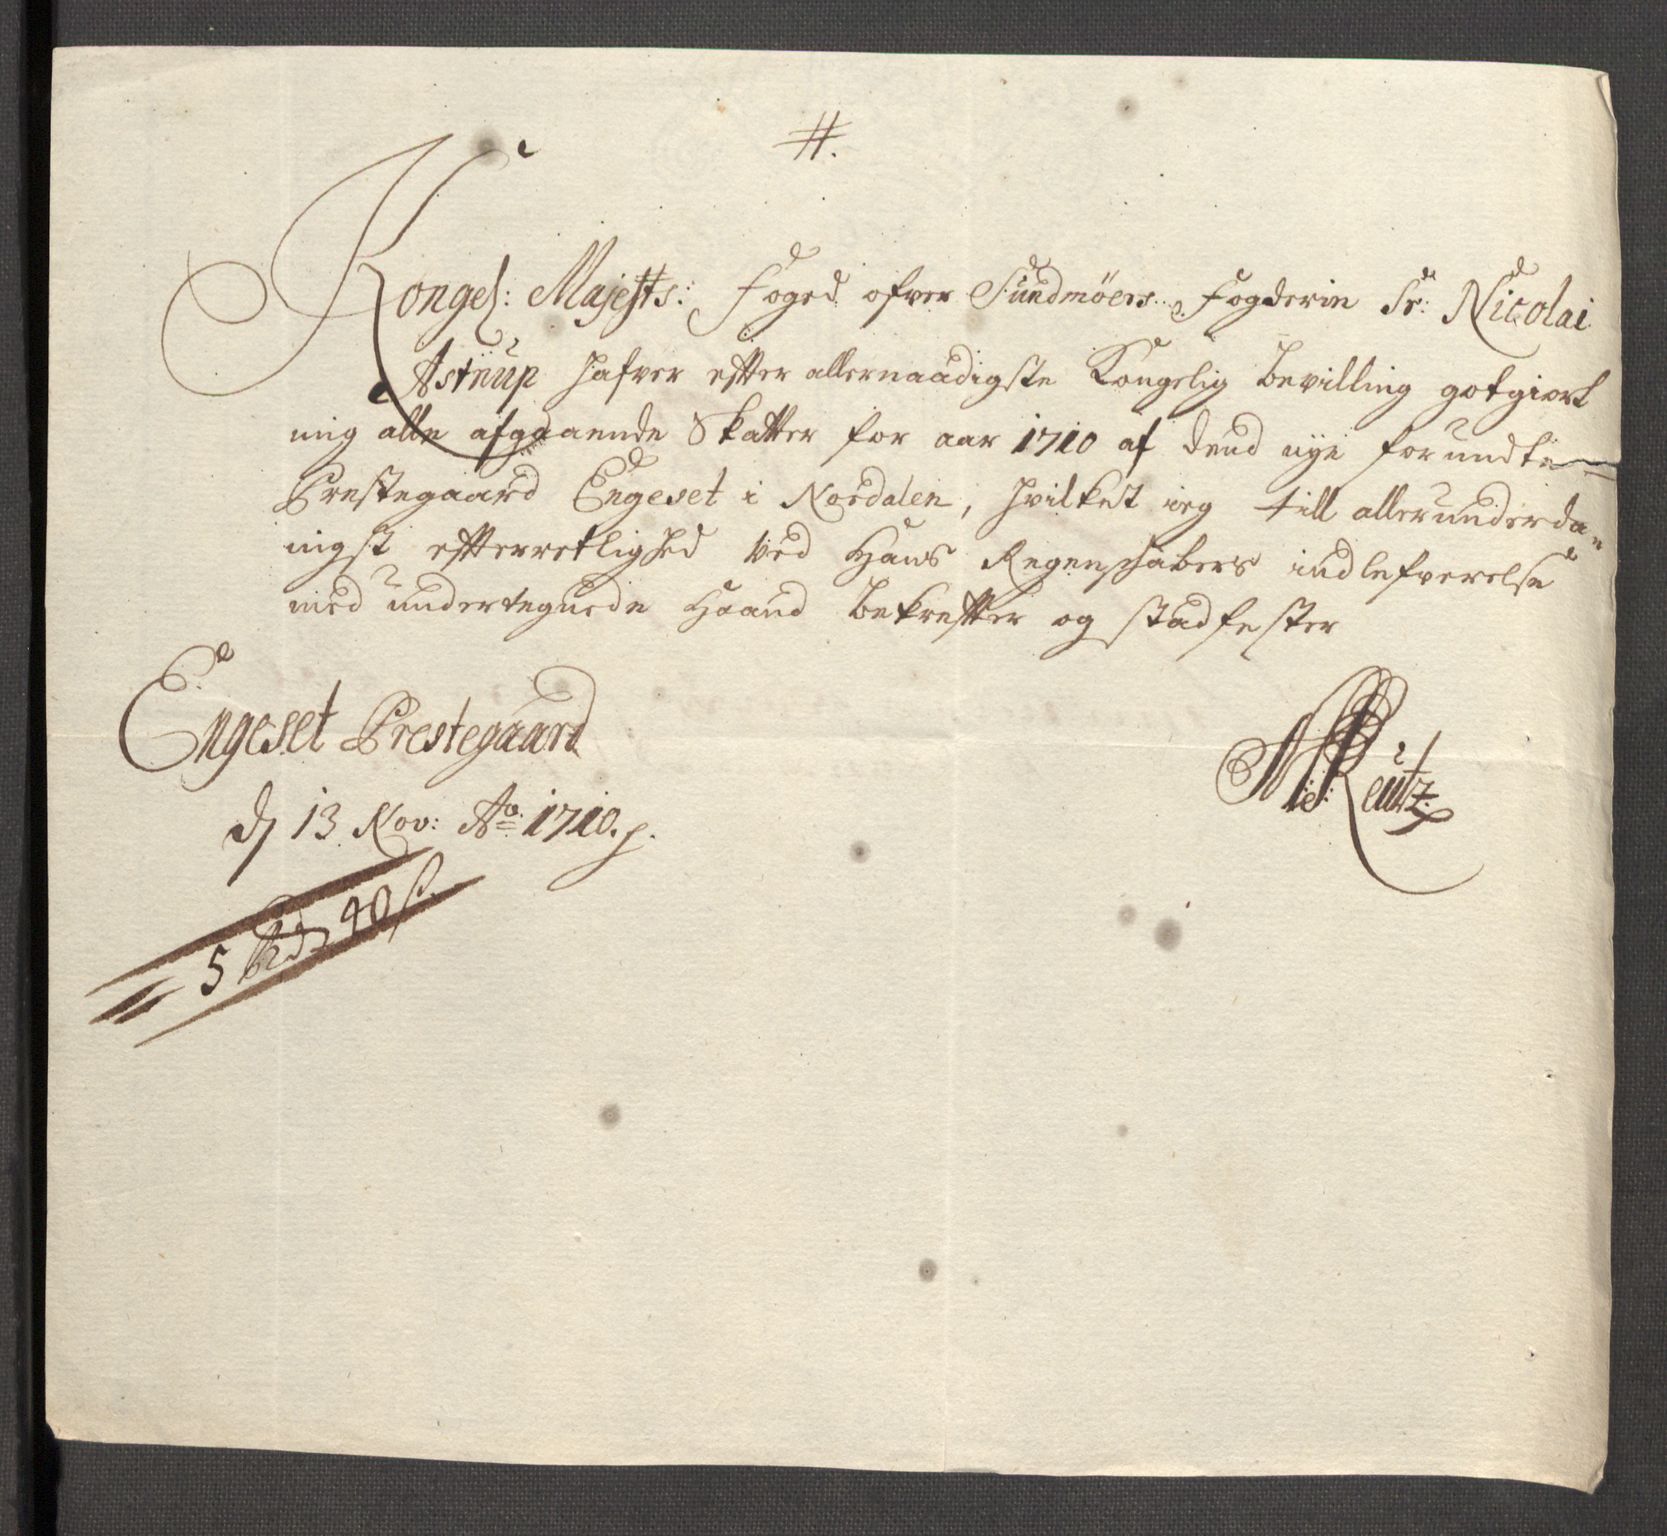 #.
Kongel: Majestts: Foged ofver Sundmöers Fogderie Sr: Nicolai
Astrüp hafver effter allernaadigste Kongelig bevilling gotgiort
mig alle afgaaende Skatter for aar 1710 af dend nye forundte
Prestegaard Engeset i Nordalen, hvilket ieg till allerunderda-
nigst effterretlighed ved Hans Regenskabers indlefverelse
med undertegnede Haand bekreffter og stadfester
Engeset Prestegaard
d 13 Nov: Ao 1710.
5 Rd 40 s.
Reutz